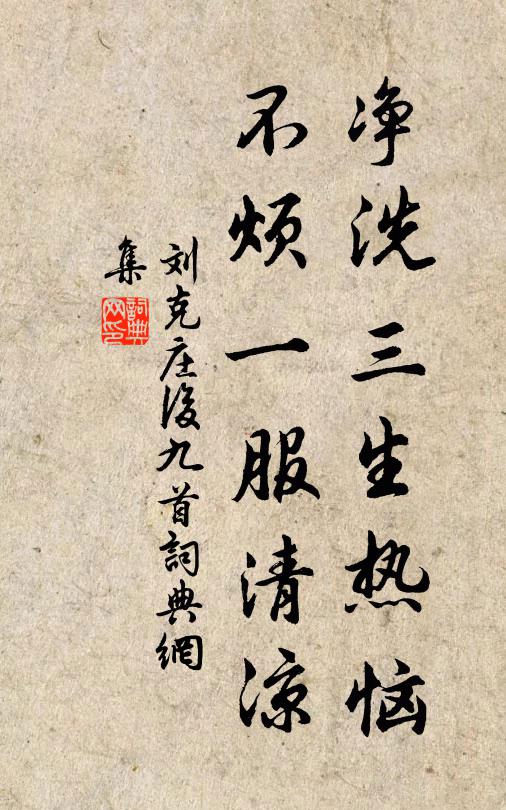 净洗三生热恼
不烦一服清凉
刘克庄後九首詞典網
集
詞典網印